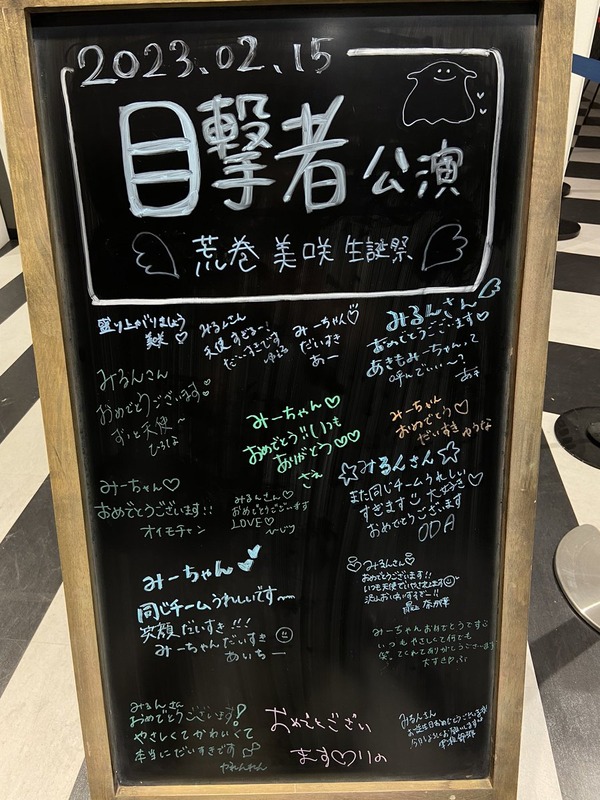 2023.02.15
目撃者 公演
荒巻 美咲 生誕祭
盛り上がりましょう
美咲
みるんさん
天使すぎるー!
だいすきです
みーちゃん♡
だいすき
あー
みるんさん
おめでとうございます♡
あきもみーちゃんって
呼んでいい〜?
あき
みるんさん
おめでとうございます
ずっと天使
ひろは
みーちゃん♡
おめでとう!!いつも
ありがとう♡♡
さえ
みーちゃん
おめでとう♡
だいすき ゆうな
みーちゃん♡
おめでとうございます!!
オイモチャン
みるんさん♡
おめでとうございます
LOVE♡
☆みるんさん☆
また同じチームうれしい
すぎます 大好き♡
おめでとうございます
ODA
みーちゃん
同じチームうれしいです〜
笑顔だいすき!!!
みーちゃんだいすき
あいちー
♡みるんさん♡
おめでとうございます!!
いつも天使で
奈那華
みーちゃんおめでとうです
いつもやさしくて
大すき♡
みるんさん
おめでとうございます!
やさしくてかわいくて
本当にだいすきです
おめでとござい
ます♡りの
みるんさん
お誕生日おめでとうございます